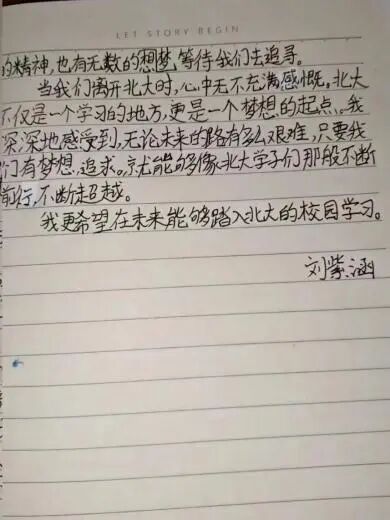 LET STORY BEGIN
的精神，也有无数的想梦等待我们去追寻。
当我们离开北大时，心中无不充满感慨。北大
不仅是一个学习的地方，更是一个梦想的起点。我
深深地感受到，无论未来的路有多么艰难，只要我
们有梦想，追求。就能够像北大学子们那般不断
前行，不断超越。
我更希望在未来能够踏入北大的校园学习。
刘紫涵